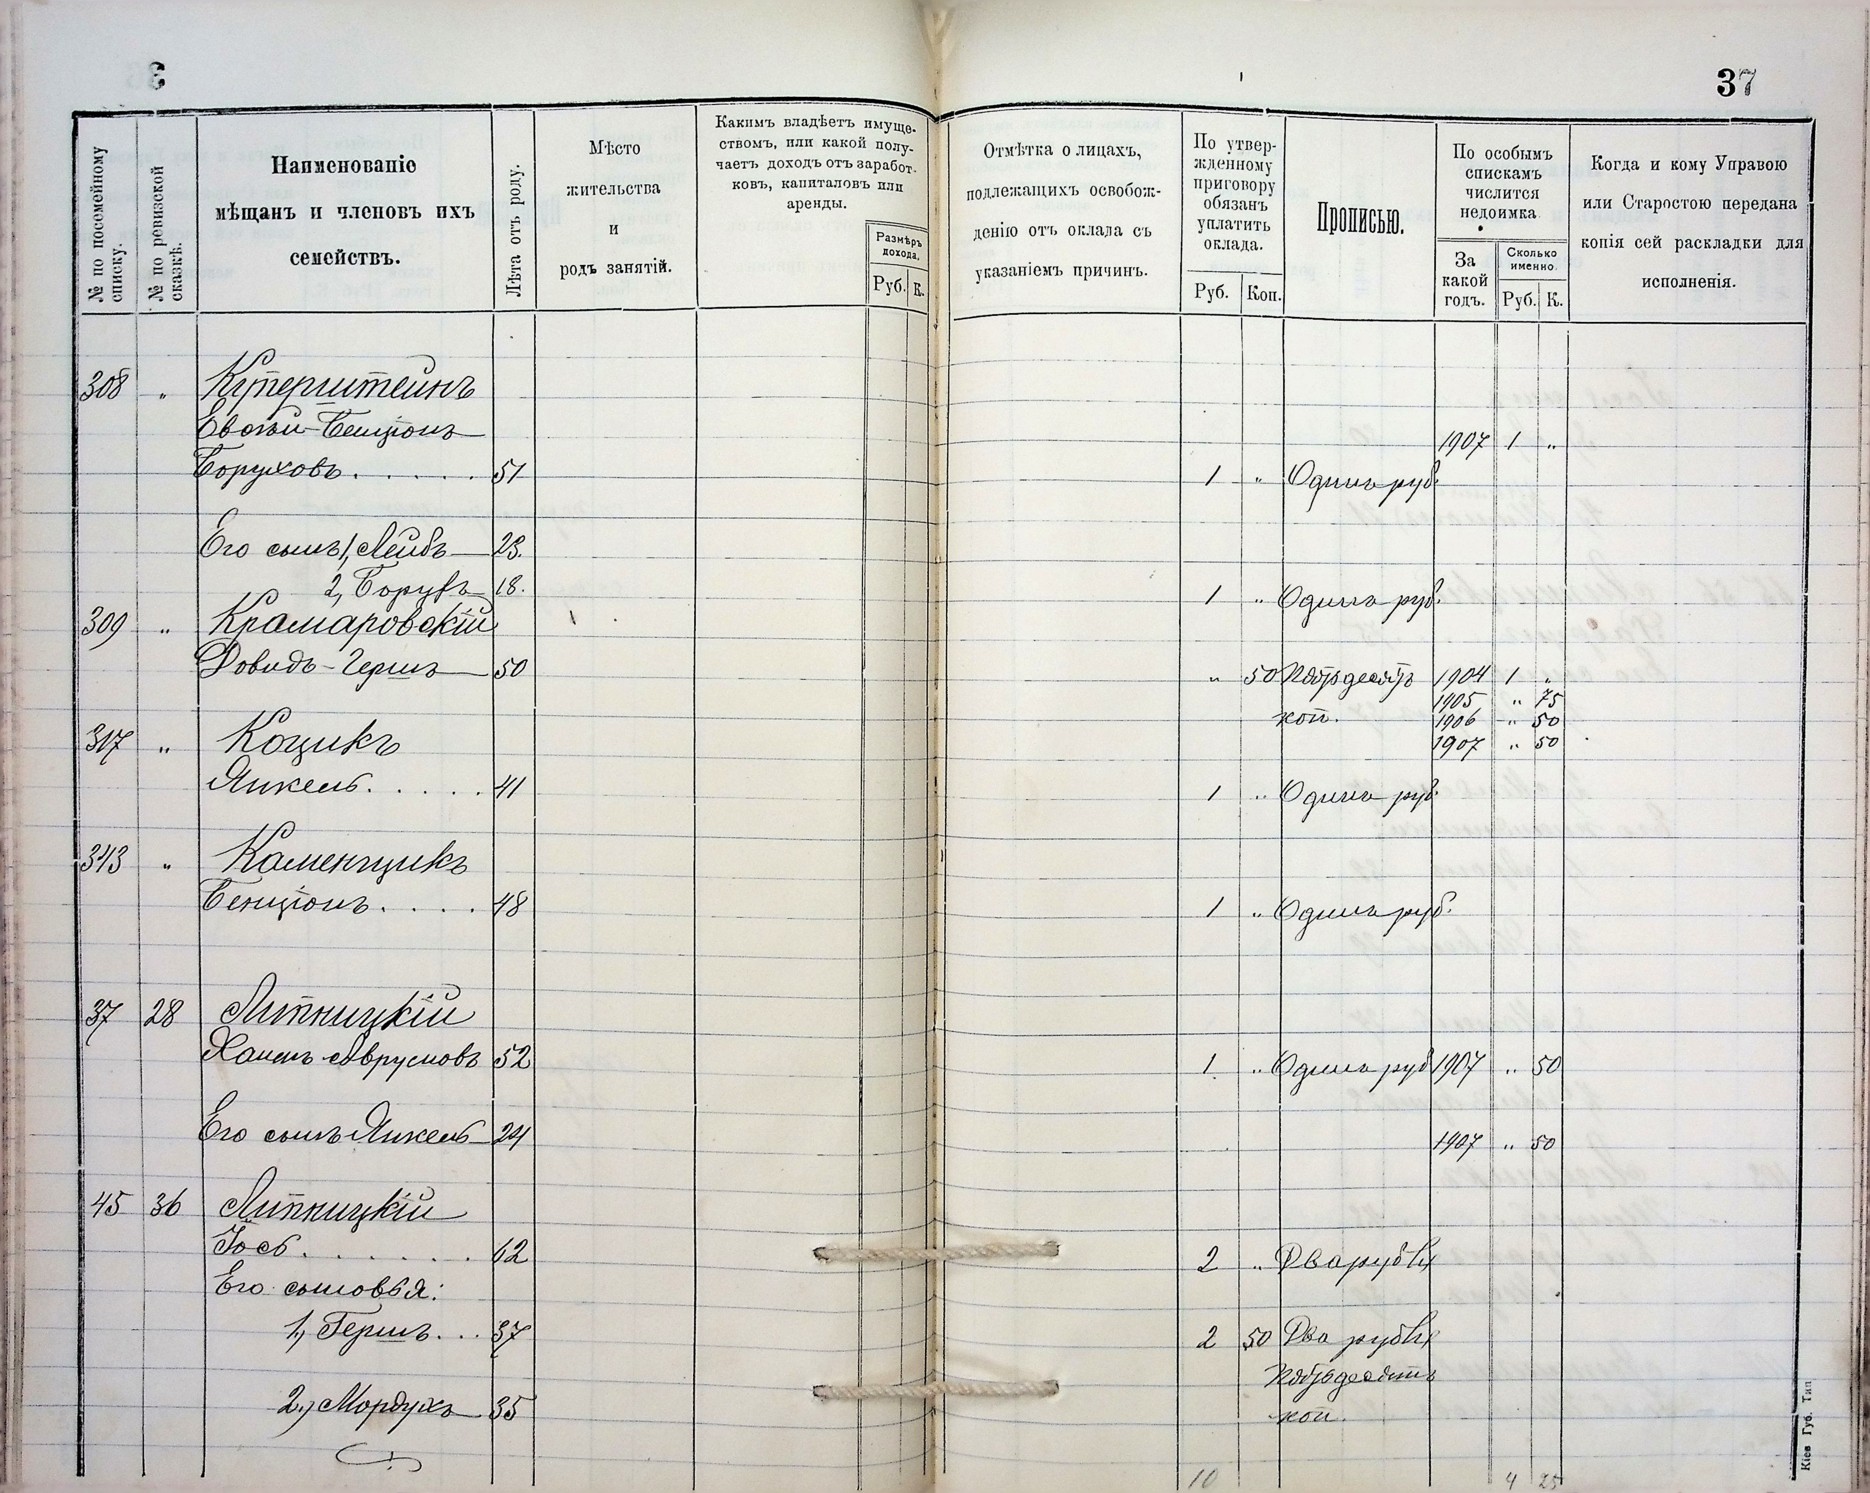 37
№ по посемейному списку.
№ по ревизской сказкѣ.
Наименованіе
мѣщанъ и членовъ ихъ
семействъ.
Лѣта отъ роду.
Мѣсто
жительства
и
родъ занятій.
Какимъ владѣетъ имуще-
ствомъ, или какой полу-
чаетъ доходъ отъ заработ-
ковъ, капиталовъ или
аренды.
Размѣръ
дохода.
Руб. К.
Отмѣтка о лицахъ,
подлежащихъ освобож-
денію отъ оклада съ
указаніемъ причинъ.
По утвер-
жденному
приговору
обязанъ
уплатить
оклада.
Руб. Коп.
Прописью.
По особымъ
спискамъ
числится
недоимка
За
какой
годъ.
Сколько
именно.
Руб. К.
Когда и кому Управою
или Старостою передана
копія сей раскладки для
исполненія.
308 „ Куперштейнъ
Бенціонъ 1907 1 „
Боруховъ . . . . . 51 1 „ Одинъ руб.
Его сынъ 1, Лейбъ 23.
2, Борухъ 18. 1 „ Одинъ руб.
309 „ Крамаровскій
Довидъ-Гершъ 50 „ 50 Пятьдесятъ 1904 1 „
1905 „ 75
коп. 1906 „ 50
317 „ Коцикъ 1907 „ 50
Янкель . . . . . 41 1 „ Одинъ руб.
343 „ Каменщикъ
Бенціонъ . . . . 48 1 „ Одинъ руб.
37 28 Липницкій
Хаимъ Аврумовъ 52 1 „ Одинъ руб 1907 „ 50
Его сынъ Янкель 24 1907 „ 50
45 36 Липницкій
Іось . . . . . . . 62 2 „ Два рубля
Его сыновья:
1, Гершъ . . . 37 2 50 Два рубля
Пятьдесятъ
2, Мордухъ 35 коп.
10 4 25
Кіев Губ. Тип